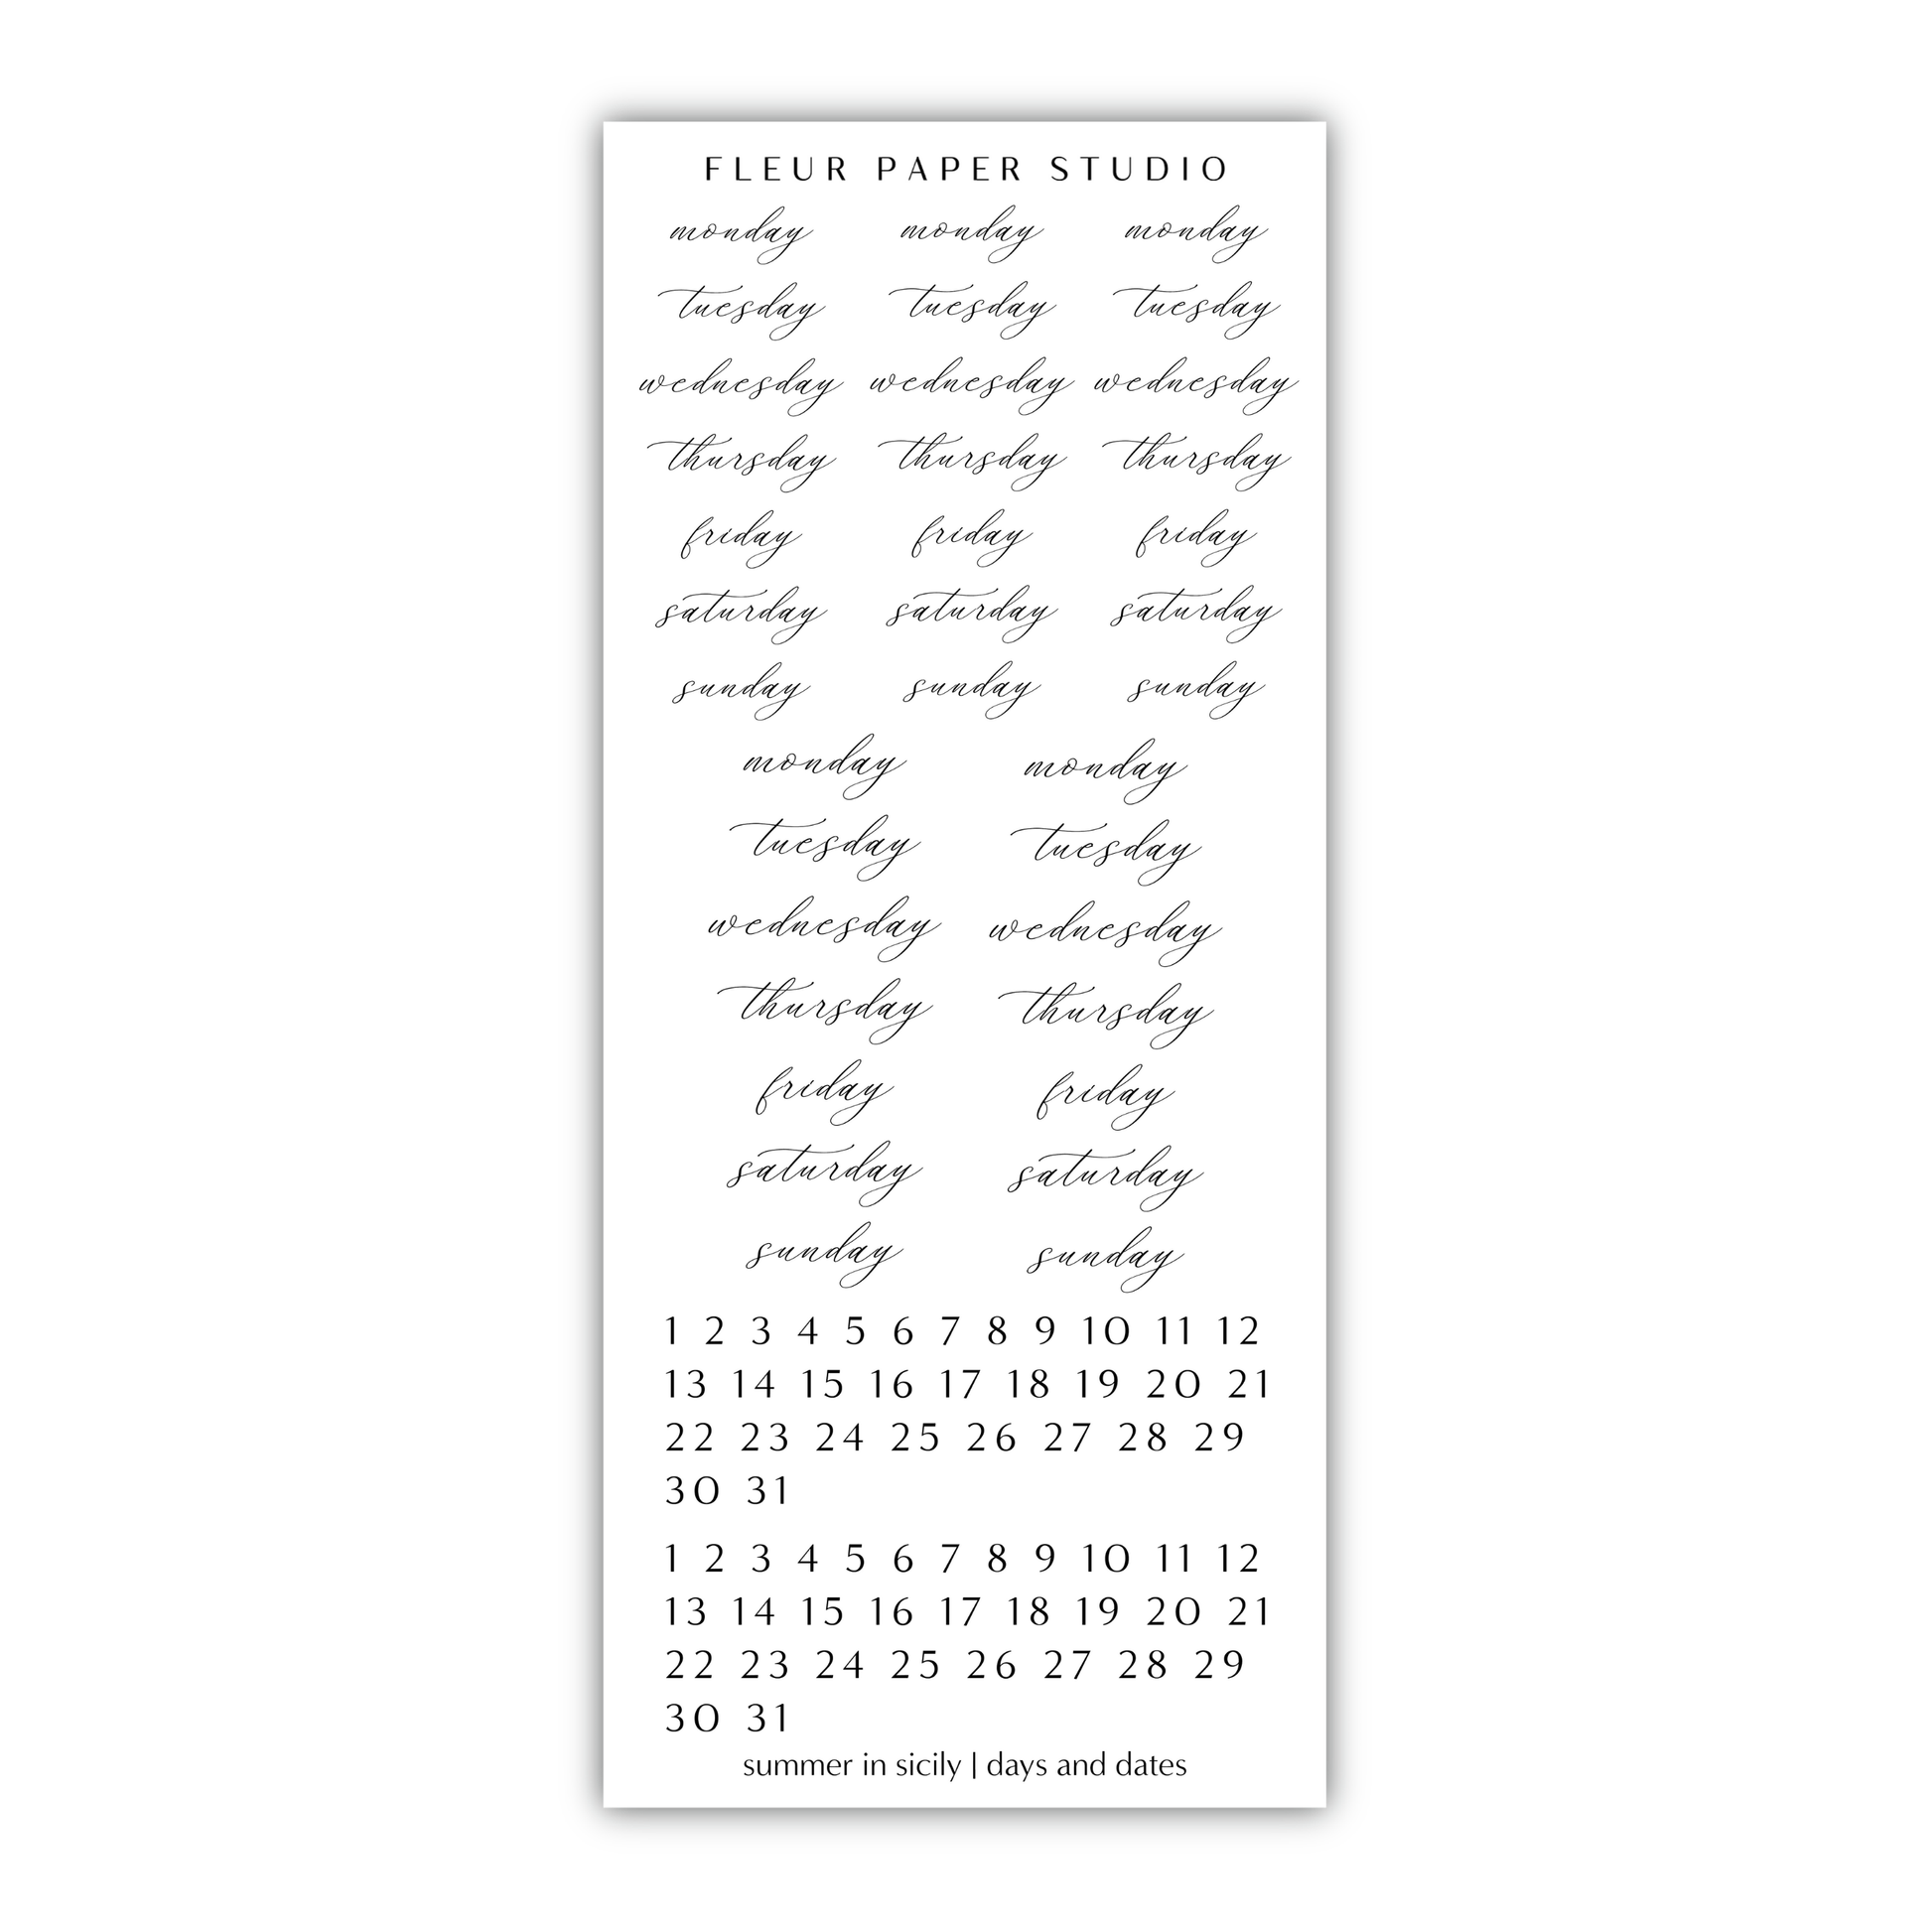 FLEUR PAPER STUDIO
monday monday monday
tuesday tuesday tuesday
wednesday wednesday wednesday
thursday thursday thursday
friday friday friday
saturday saturday saturday
sunday sunday sunday
monday monday
tuesday tuesday
wednesday wednesday
thursday thursday
friday friday
saturday saturday
sunday sunday
1 2 3 4 5 6 7 8 9 10 11 12
13 14 15 16 17 18 19 20 21
22 23 24 25 26 27 28 29
30 31
1 2 3 4 5 6 7 8 9 10 11 12
13 14 15 16 17 18 19 20 21
22 23 24 25 26 27 28 29
30 31
summer in sicily | days and dates